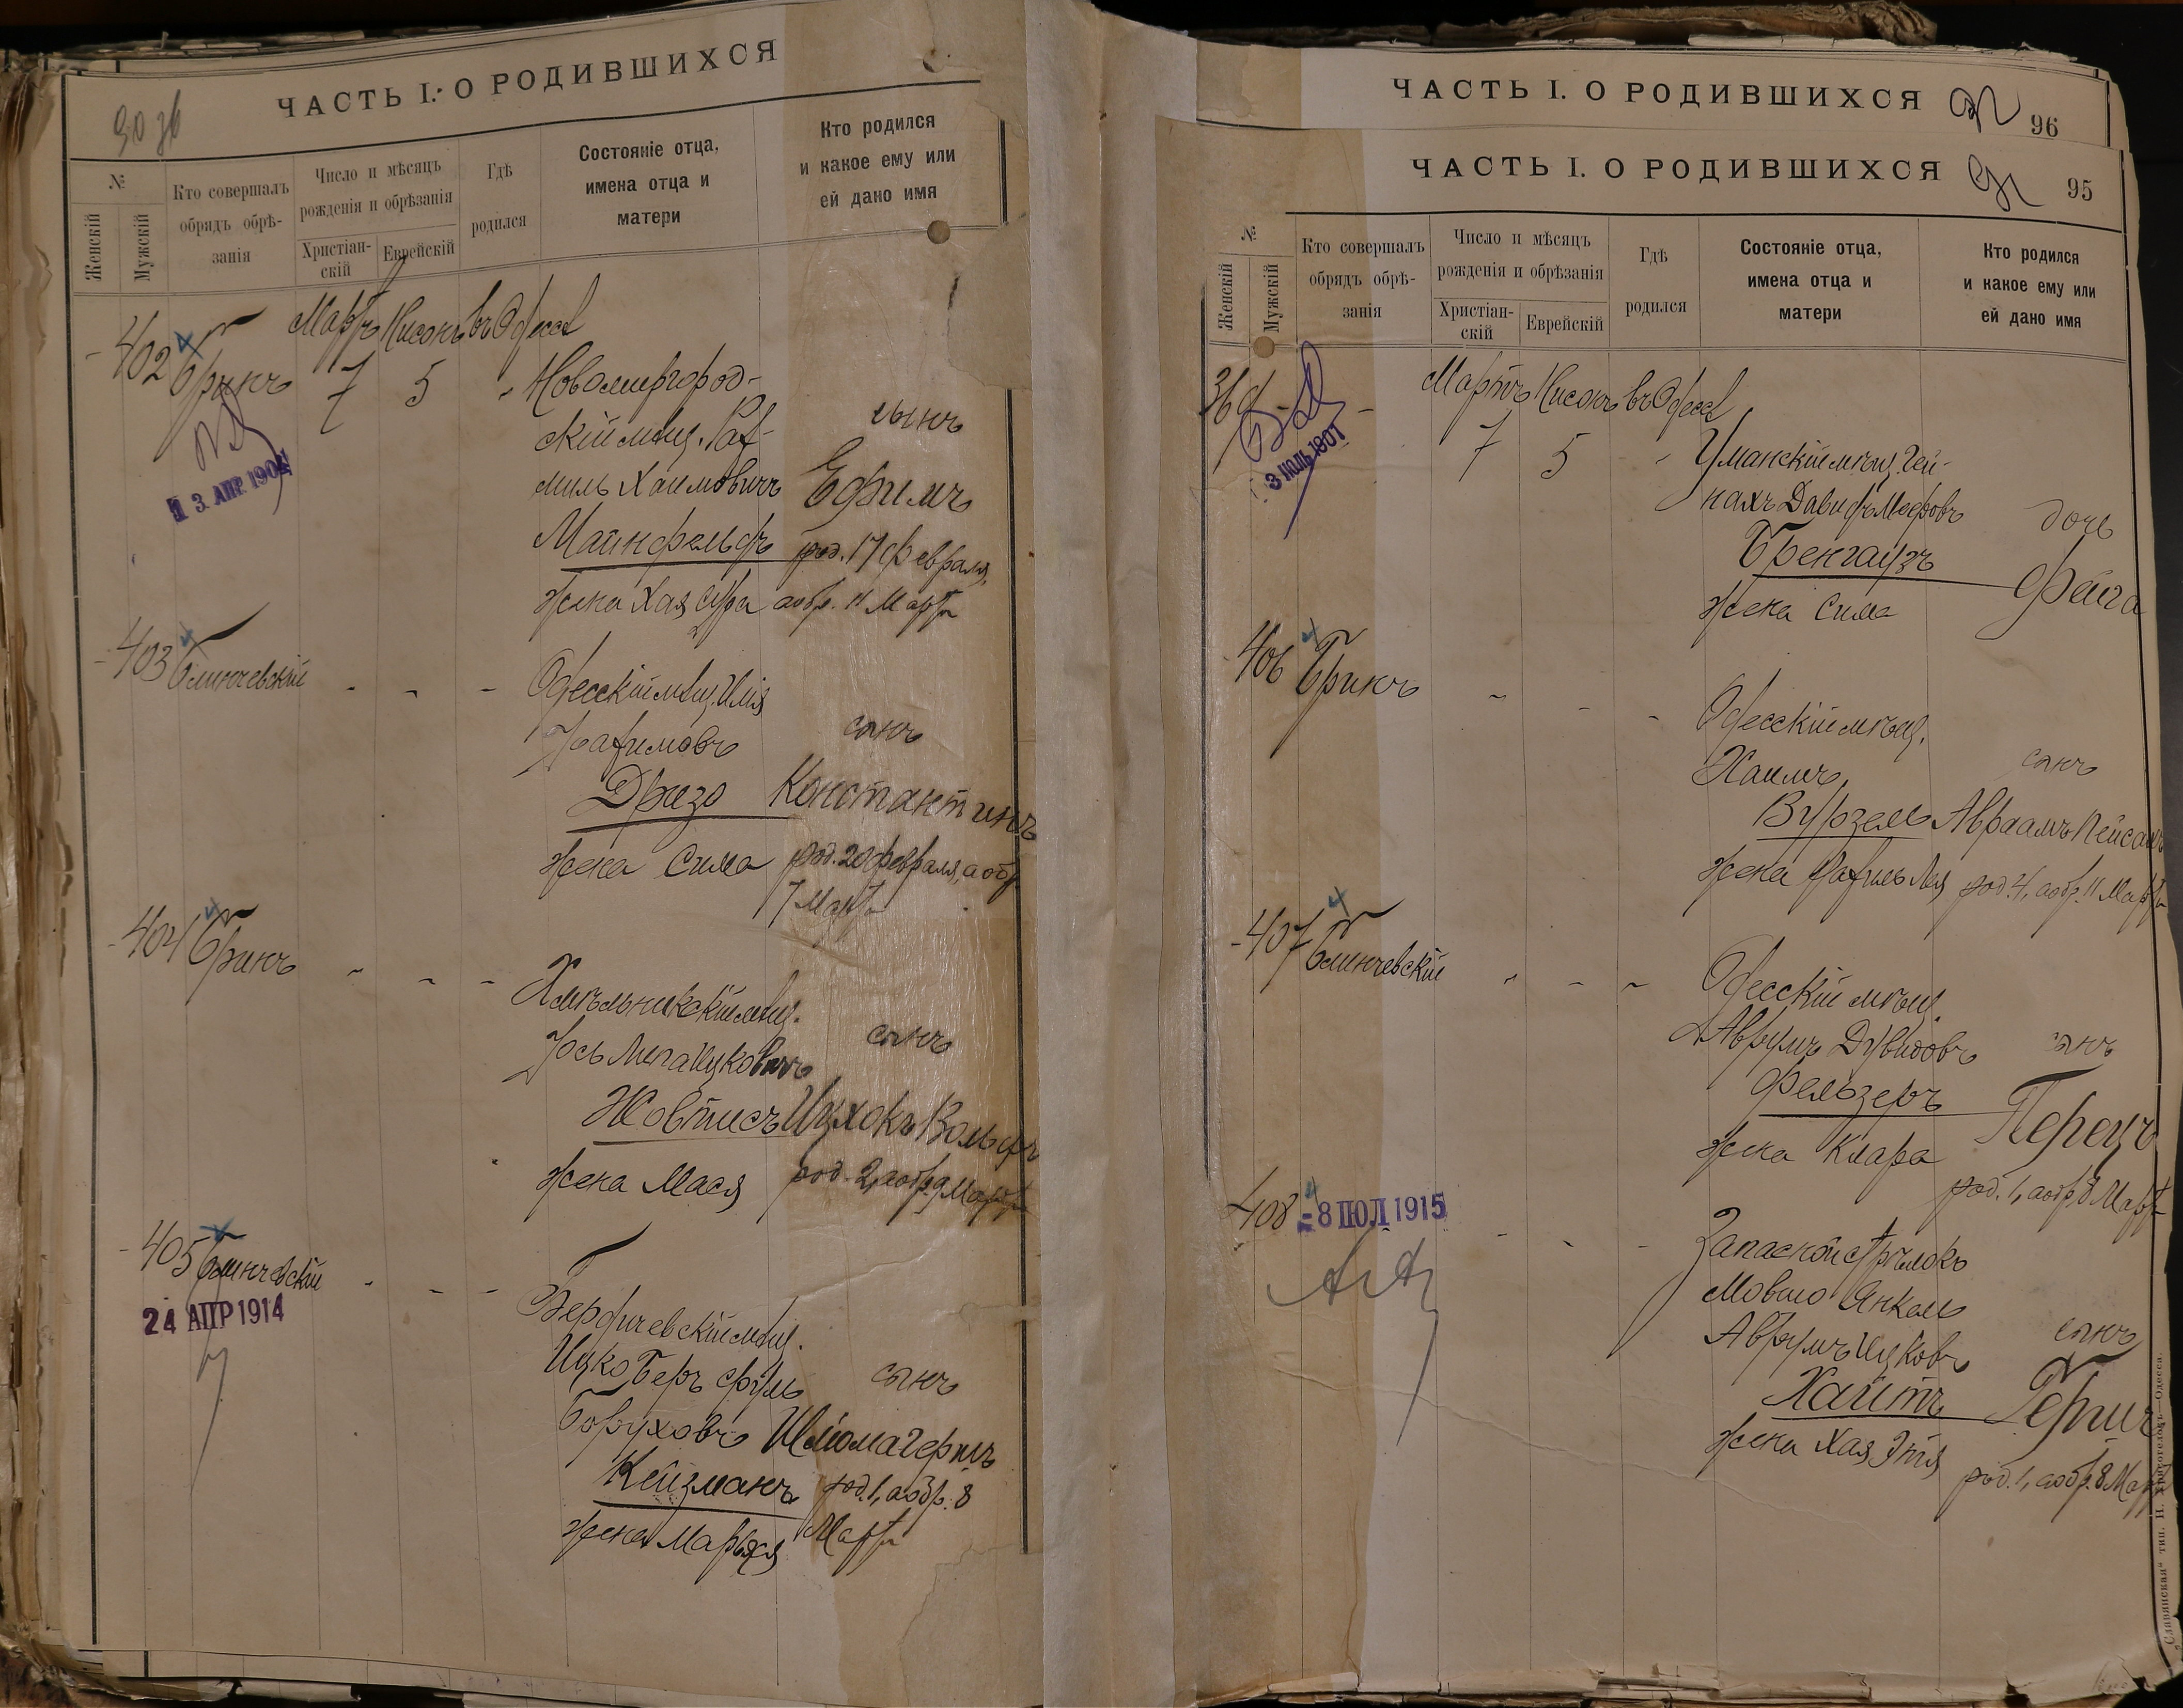 ЧАСТЬ I. О РОДИВШИХСЯ
№
Женскій
Мужскій
Кто совершалъ
обрядъ обрѣ-
занія
Число и мѣсяцъ
рожденія и обрѣзанія
Христіан-
скій
Еврейскій
Гдѣ
родился
Состояніе отца,
имена отца и
матери
Кто родился
и какое ему или
ей дано имя
Мартъ Нисонъ въ Одессѣ
402 Бринъ 7 5 Новомиргород-
скій мѣщ. Рах-
миль Хаимовичъ
Майнфельдъ
жена Хая Сура
сынъ
Ефимъ
род. 17 февраля,
а обр. 11 Марта
13 АПР 1904
403 Блинчевскій
Одесскій мѣщ. Илія
Рафимовъ
Дризо
жена Сима
сынъ
Константинъ
род. 20 февраля, а обр
7 Марта
404 Бринъ
Хмѣльникскій мѣщ.
Іось Липа Ицковичъ
Жовтисъ
жена Мася
сынъ
Ицхокъ Вольфъ
род. 2, а обр. 9 Марта
405 Блинчевскій
24 АПР 1914
Бердичевскій мѣщ.
Ицко Беръ Сруль
Боруховъ
Кейзманъ
жена Марьяся
сынъ
Шлiома Гершъ
род. 1, а обр. 8
Марта
ЧАСТЬ I. О РОДИВШИХСЯ
96
ЧАСТЬ I. О РОДИВШИХСЯ
95
№
Женскій
Мужскій
Кто совершалъ
обрядъ обрѣ-
занія
Число и мѣсяцъ
рожденія и обрѣзанія
Христіан-
скій
Еврейскій
Гдѣ
родился
Состояніе отца,
имена отца и
матери
Кто родился
и какое ему или
ей дано имя
Мартъ Нисонъ въ Одессѣ
7 5 Уманскій мѣщ. Гей-
нахъ Давидъ Мееровъ
Бренгаузъ
жена Сима
дочь
Фейга
406 Бринъ
Одесскій мѣщ.
Хаимъ
Вурзель
жена Рахиль Лея
сынъ
Авраамъ Пейсахъ
род. 4, а обр. 11 Марта
407 Блинчевскій
Одесскій мѣщ.
Аврумъ Дувидовъ
Фельзеръ
жена Клара
сынъ
Перецъ
род. 1, а обр. 8 Марта
408 -8 ІЮЛ 1915
Запасной стрѣлокъ
Мовшо Янкель
Аврумъ Ицковъ
Хаитъ
жена Хая Этя
сынъ
Гершъ
род. 1, а обр. 8 Марта